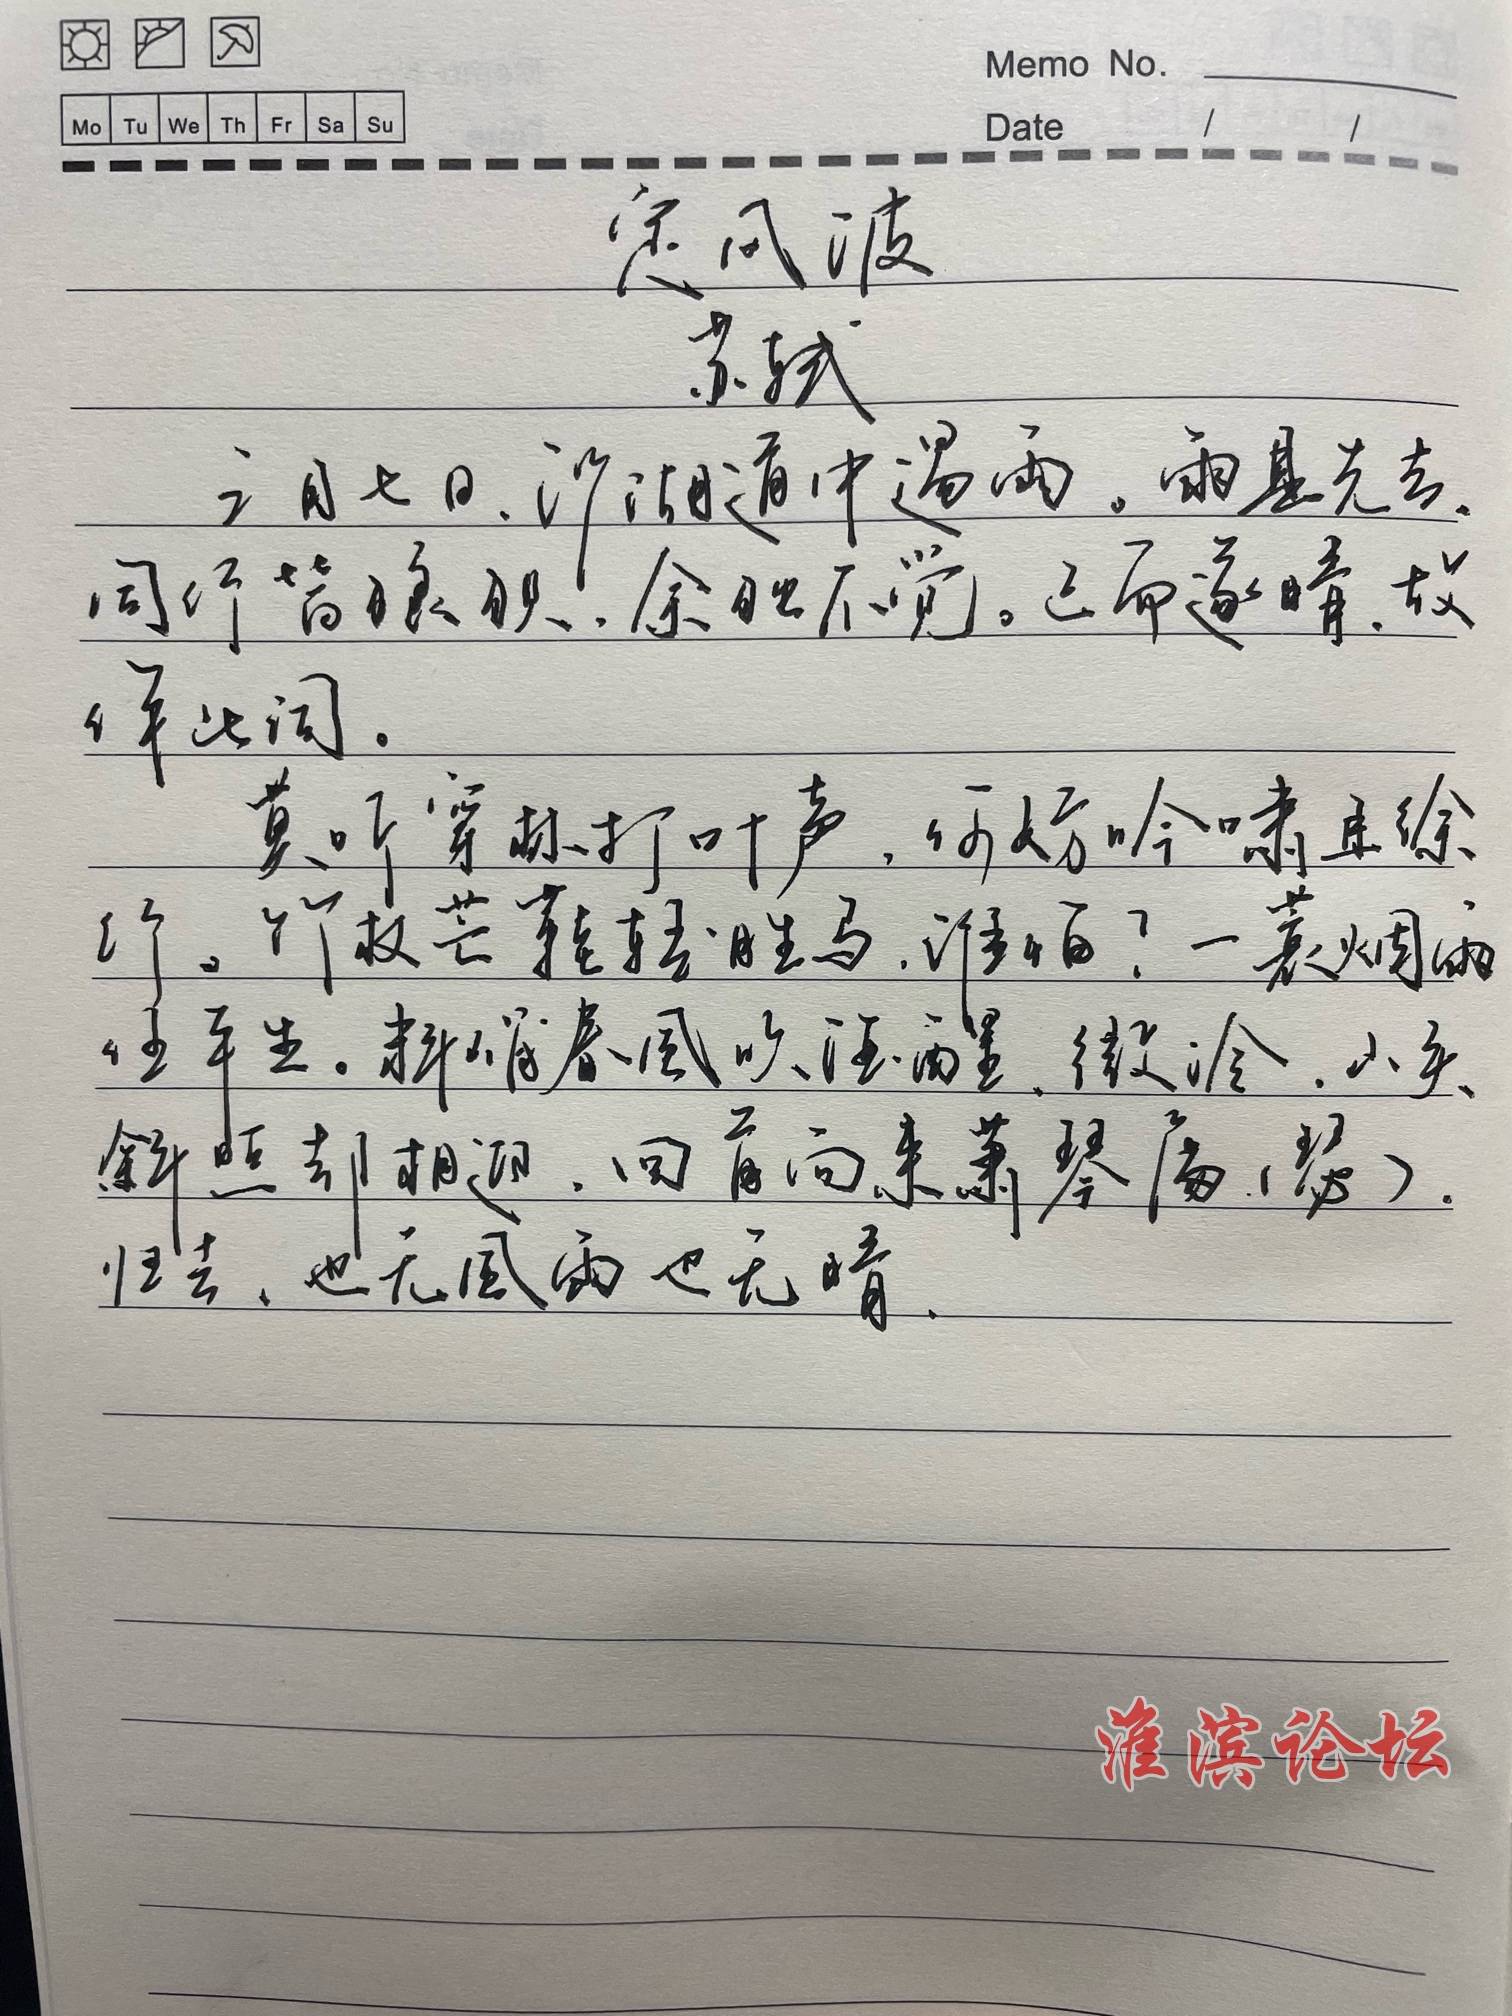 Memo No.
Mo Tu We Th Fr Sa Su
Date / /
定风波
苏轼
三月七日,沙湖道中遇雨。雨具先去,
同行皆狼狈,余独不觉。已而遂晴,故
作此词。
莫听穿林打叶声,何妨吟啸且徐
行。竹杖芒鞋轻胜马,谁怕?一蓑烟雨
任平生。料峭春风吹酒醒,微冷,山头
斜照却相迎,回首向来萧琴(瑟),
归去,也无风雨也无晴,
淮滨论坛